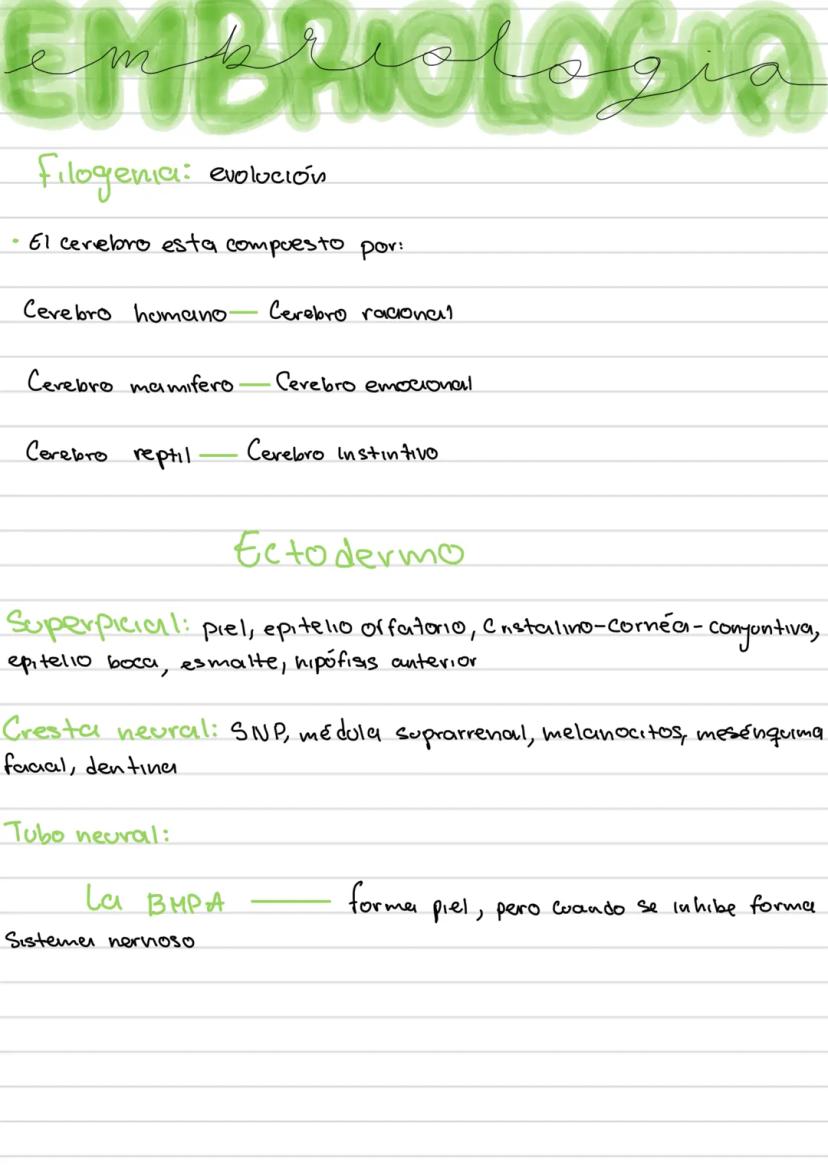 EMBRIOLOGIA
embriologia
Filogenia: evolución
• El cerebro esta compuesto por:
Cerebro humano — Cerebro racional
Cerebro mamifero — Cerebro emocional
Cerebro reptil — Cerebro instintivo
Ectodermo
Superficial: piel, epitelio olfatorio, Cristalino-cornéa-conjuntiva,
epitelio boca, esmalte, hipófisis anterior
Cresta neural: SNP, médula suprarrenal, melanocitos, mesénquima
facial, dentina
Tubo neural:
La BMPA — forma piel, pero cuando se inhibe forma
Sistema nervioso